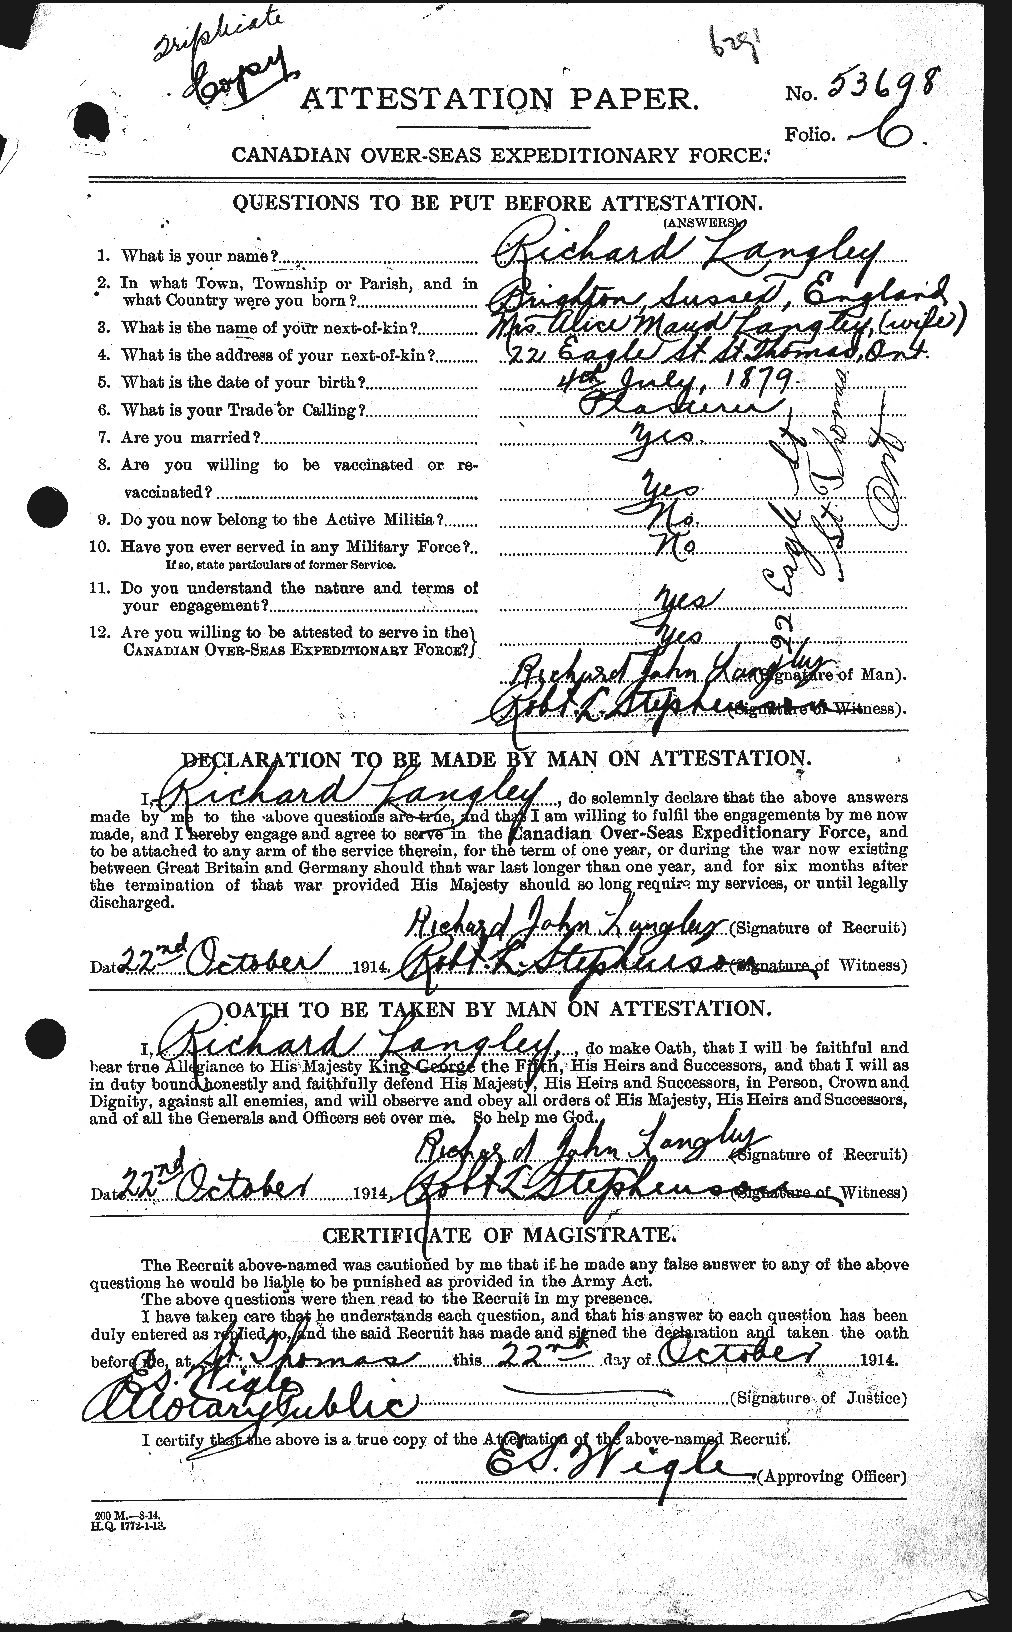 Triplicate
Copy
629
ATTESTATION PAPER.
No. 53698
Folio. 6.
CANADIAN OVER-SEAS EXPEDITIONARY FORCE.
QUESTIONS TO BE PUT BEFORE ATTESTATION.
(ANSWERS)
1. What is your name? Richard Langley
2. In what Town, Township or Parish, and in
what Country were you born? Brighton, Sussex, England
3. What is the name of your next-of-kin? Mrs. Alice Maud Langley, (wife)
4. What is the address of your next-of-kin? 22 Eagle St St. Thomas, Ont.
5. What is the date of your birth? 4th July, 1879.
6. What is your Trade or Calling? Plasterer
7. Are you married? Yes.
8. Are you willing to be vaccinated or re-
vaccinated? Yes
9. Do you now belong to the Active Militia? No.
10. Have you ever served in any Military Force? No
If so, state particulars of former Service.
11. Do you understand the nature and terms of
your engagement? Yes
12. Are you willing to be attested to serve in the
CANADIAN OVER-SEAS EXPEDITIONARY FORCE? Yes
22 Eagle St
St Thomas
Ont
Richard John Langley (Signature of Man).
Robt. L. Stephenson (Signature of Witness).
DECLARATION TO BE MADE BY MAN ON ATTESTATION.
I, Richard Langley, do solemnly declare that the above answers
made by me to the above questions are true, and that I am willing to fulfil the engagements by me now
made, and I hereby engage and agree to serve in the Canadian Over-Seas Expeditionary Force, and
to be attached to any arm of the service therein, for the term of one year, or during the war now existing
between Great Britain and Germany should that war last longer than one year, and for six months after
the termination of that war provided His Majesty should so long require my services, or until legally
discharged.
Richard John Langley (Signature of Recruit)
Date 22nd October 1914. Robt. L. Stephenson (Signature of Witness)
OATH TO BE TAKEN BY MAN ON ATTESTATION.
I, Richard Langley, do make Oath, that I will be faithful and
bear true Allegiance to His Majesty King George the Fifth, His Heirs and Successors, and that I will as
in duty bound honestly and faithfully defend His Majesty, His Heirs and Successors, in Person, Crown and
Dignity, against all enemies, and will observe and obey all orders of His Majesty, His Heirs and Successors,
and of all the Generals and Officers set over me. So help me God.
Richard John Langley (Signature of Recruit)
Date 22nd October 1914. Robt L Stephenson (Signature of Witness)
CERTIFICATE OF MAGISTRATE.
The Recruit above-named was cautioned by me that if he made any false answer to any of the above
questions he would be liable to be punished as provided in the Army Act.
The above questions were then read to the Recruit in my presence.
I have taken care that he understands each question, and that his answer to each question has been
duly entered as replied to, and the said Recruit has made and signed the declaration and taken the oath
before me, at St. Thomas this 22nd day of October 1914.
E S. Wigle
A Notary Public (Signature of Justice)
I certify that the above is a true copy of the Attestation of the above-named Recruit.
E S. Wigle (Approving Officer)
200 M.—8-14.
H.Q. 1772-1-13.